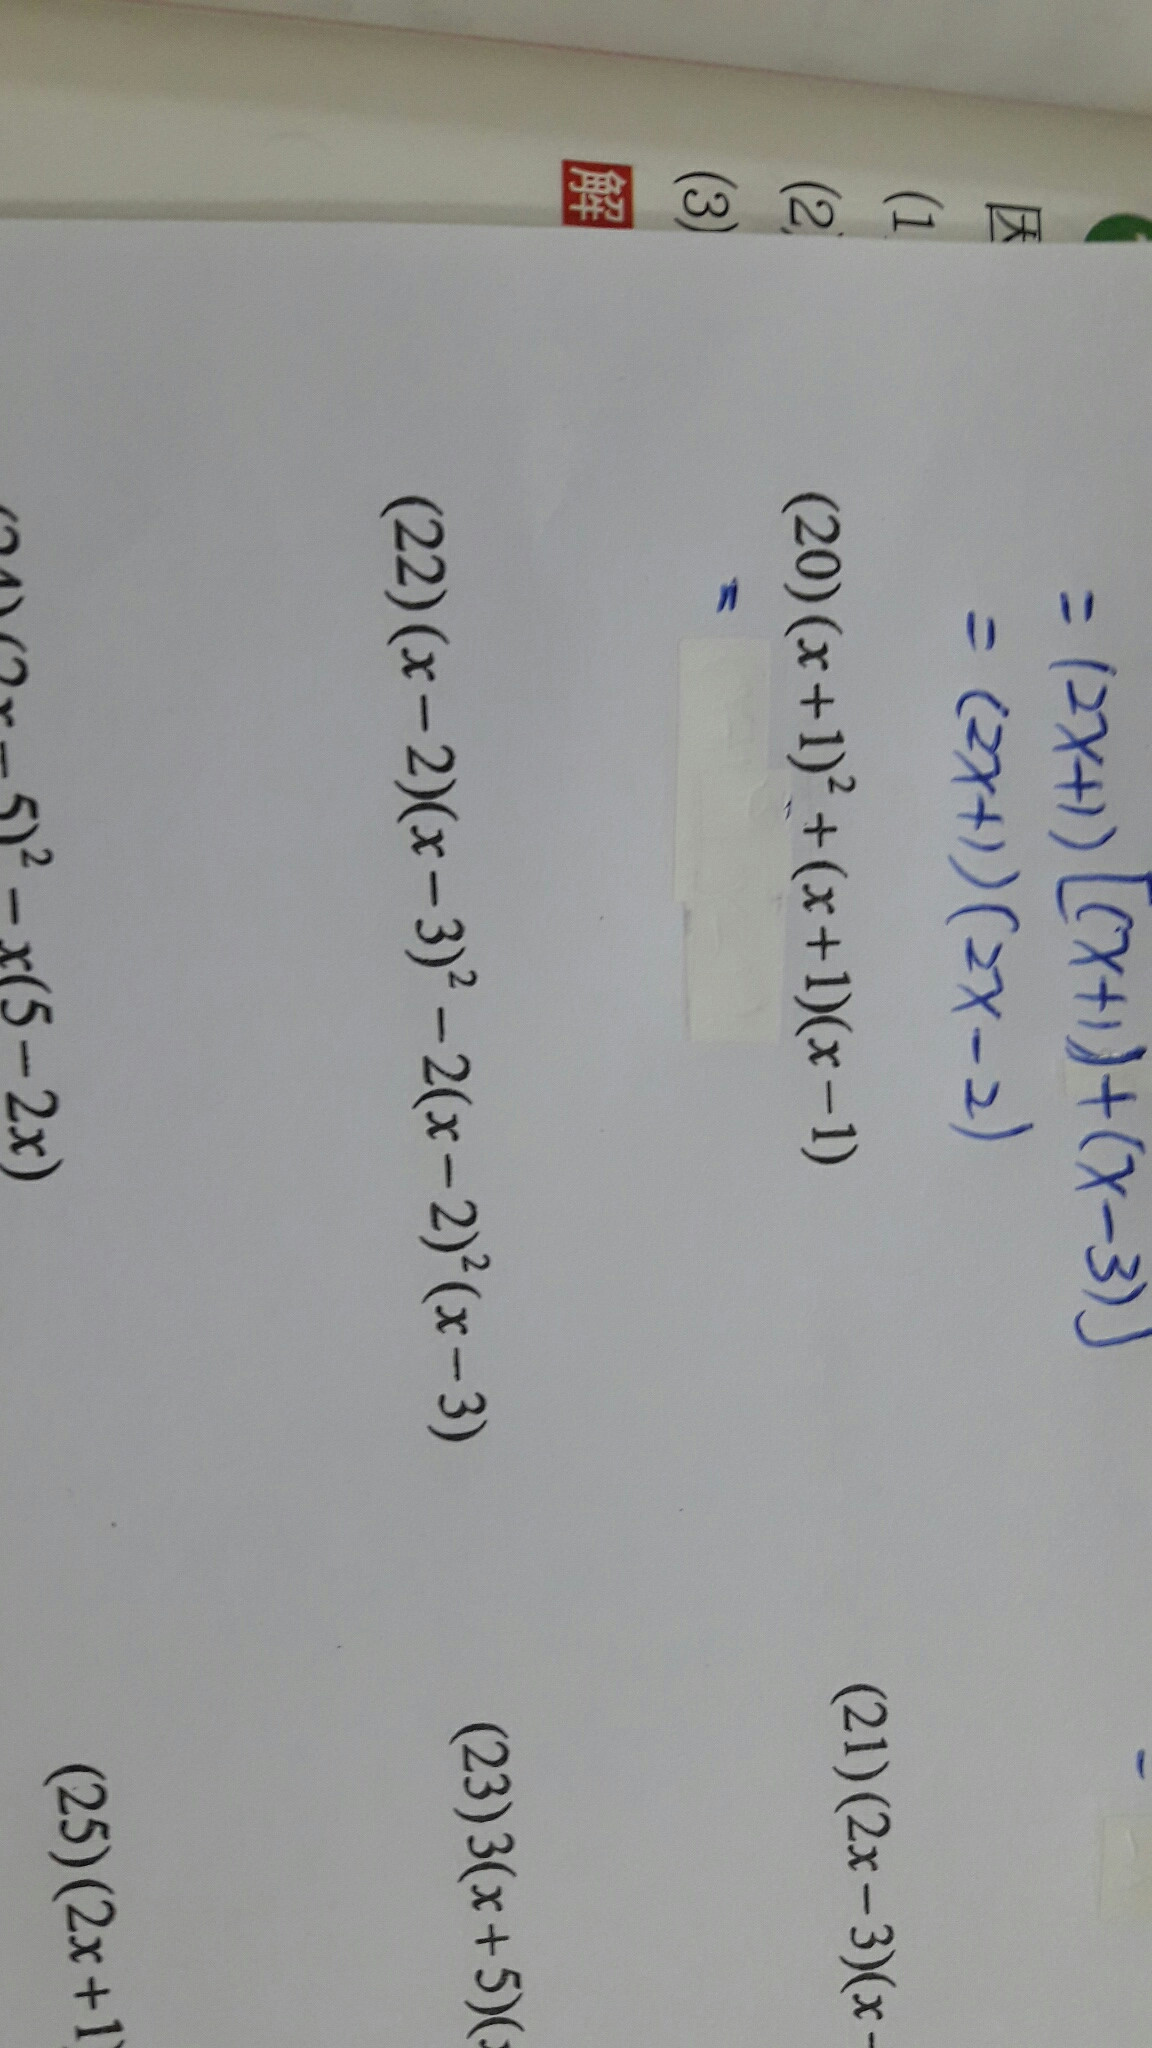 因
(1
(2)
(3)
解
= (2x+1)[(x+1)+(x-3)]
= (2x+1)(2x-2)
(20) (x+1)² + (x+1)(x-1)
=
(21) (2x-3)(x-
(22) (x-2)(x-3)² - 2(x-2)²(x-3)
(23) 3(x+5)(
(24) (2x-5)² - x(5-2x)
(25) (2x+1)